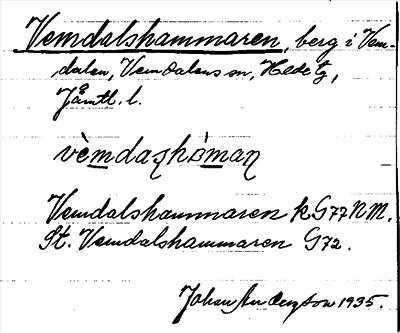 Vemdalshammaren, berg i Vem-
dalen, Vemdalens sn, Hede tg,
Jämtl. l.
Vemdalshammaren k G77NM.
St. Vemdalshammaren G72.
Johan 1935.